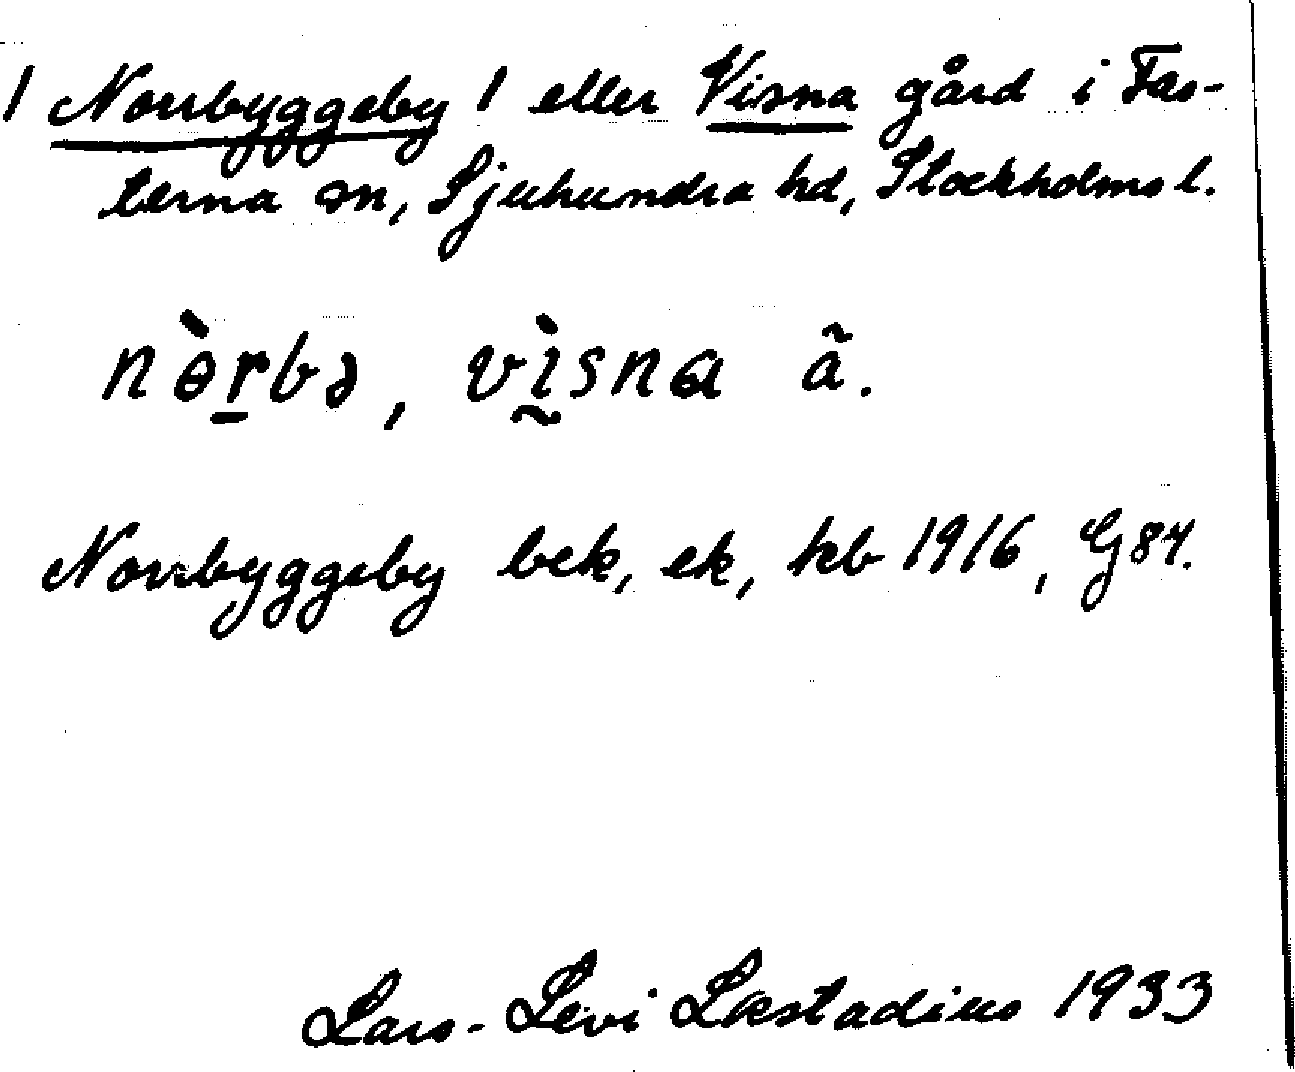 1 Norrbyggeby 1 eller Visna gård i Fas-
terna sn, Sjuhundra hd, Stockholms l.
nɵ̀r̲bə, vḭ̀sna ã.
Norrbyggeby bek, ek, kb 1916, G 84.
Lars-Levi Læstadius 1933